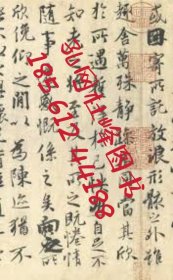 或因寄所託放浪形骸之外雖
趣舍萬殊靜躁當其欣
於所遇暫得於己快然自足不
知老之將至及其所之既惓情
隨事遷感慨係之矣向之所
欣俛仰之閒以為陳迹猶不
峰图书
185 612 44188